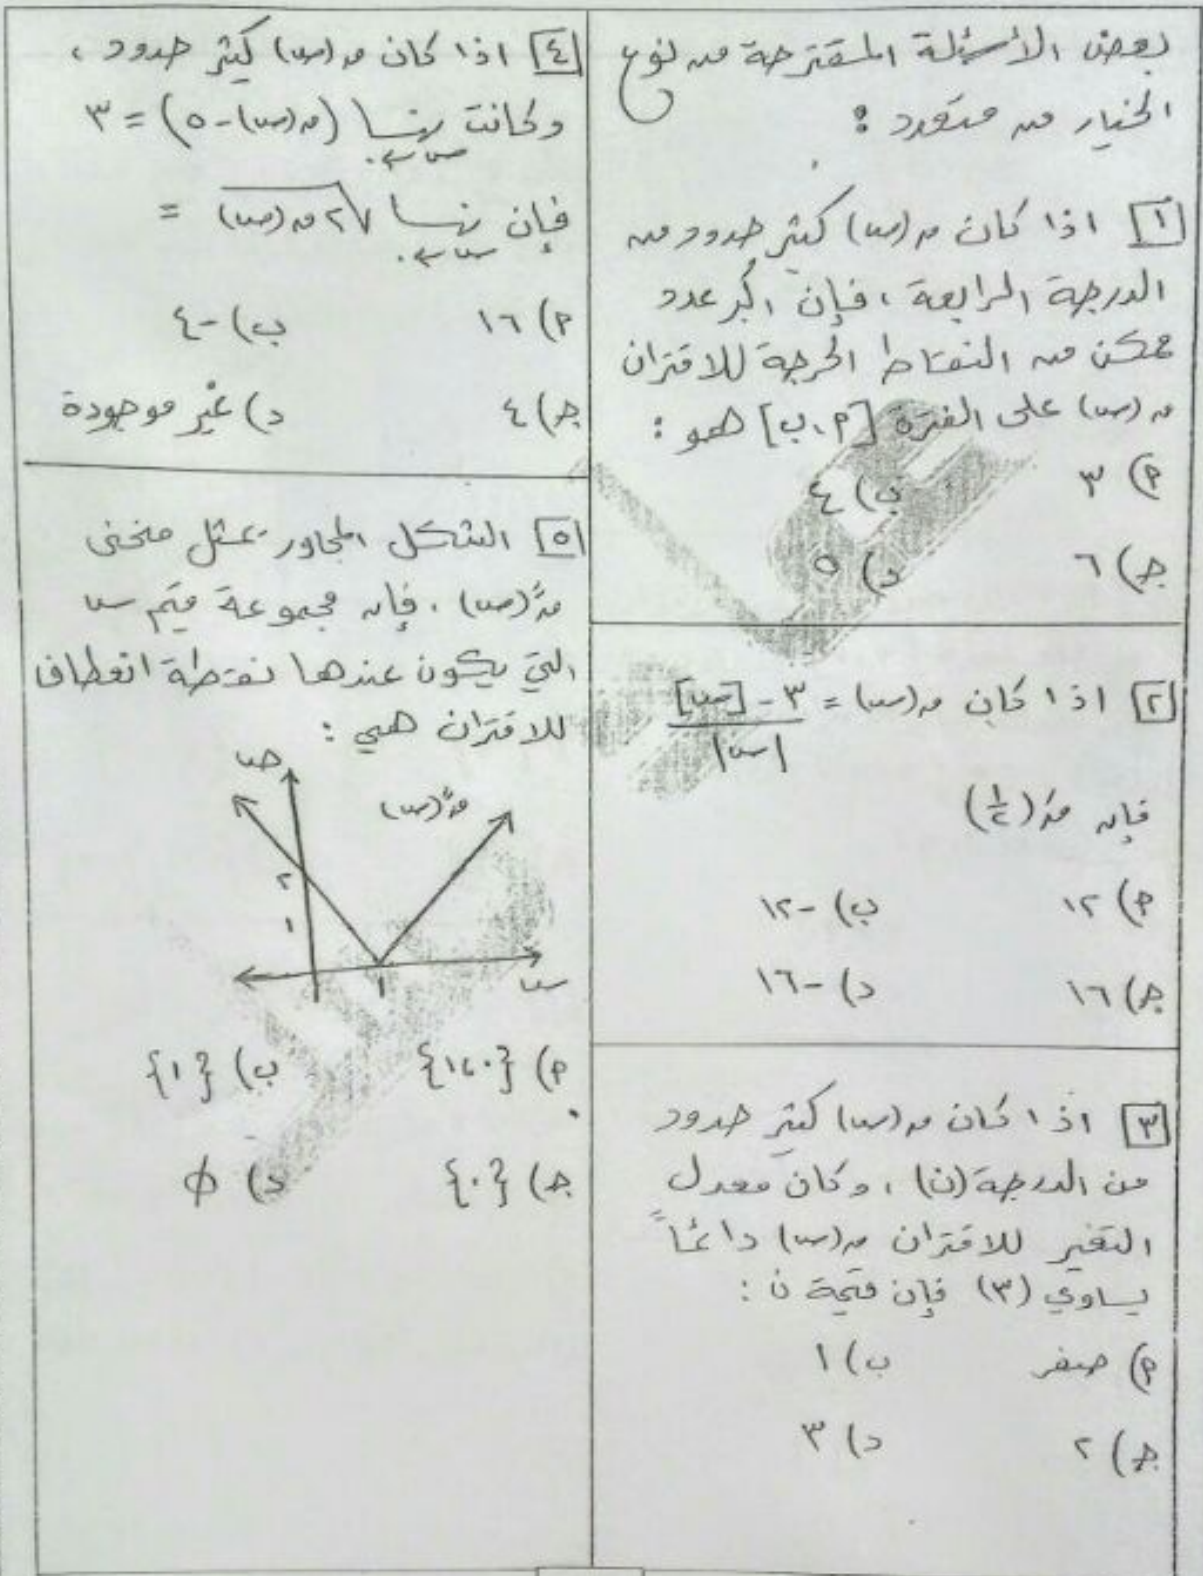 بعض الأسئلة المقترحة من نوع
الخيار من متعدد :
١ اذا كان ق(س) كثير حدود من
الدرجة الرابعة ، فإن أكبر عدد
ممكن من النقاط الحرجة للاقتران
ق(س) على الفترة [أ،ب] هو :
أ) ٣ ب) ٤
جـ) ٦ د) ٥
٢ اذا كان ق(س) = ٣ - [س]
|س|
فإن قَ(١/٢)
أ) ١٢ ب) -١٢
جـ) ١٦ د) -١٦
٣ اذا كان ق(س) كثير حدود
من الدرجة (ن) ، وكان معدل
التغير للاقتران ق(س) دائماً
يساوي (٣) فإن قيمة ن :
أ) صفر ب) ١
جـ) ٢ د) ٣
٤ اذا كان ق(س) كثير حدود ،
وكانت نهــا (ق(س) - ٥) = ٣
س←٠
فإن نهــا √٢ق(س) =
س←٠
أ) ١٦ ب) -٤
جـ) ٤ د) غير موجودة
٥ الشكل المجاور يمثل منحنى
قً(س) ، فإن مجموعة قيم س
التي يكون عندها نقطة انعطاف
للاقتران هي :
ص
قً(س)
٢
١
١
س
أ) {٠،١} ب) {١}
جـ) {٠} د) ϕ